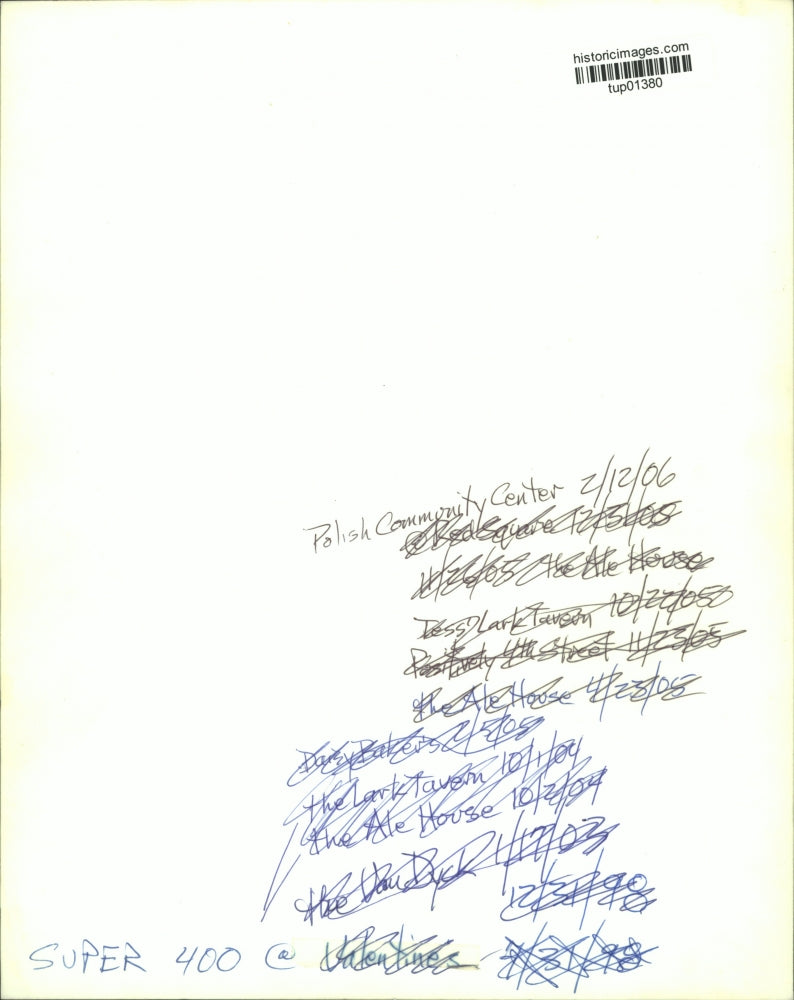 historicimages.com
tup01380
Polish Community Center 2/12/06
@ Red Square 12/3/05
11/26/05 the Ale House
Lark Tavern 10/22/05
Positively 4th Street 11/23/05
the Ale House 4/23/05
Daisy Baker's 2/5/05
the Lark Tavern 10/1/04
the Ale House 10/2/04
the Van Dyck 1/17/03
12/31/98
SUPER 400 @ Valentines 7/31/98